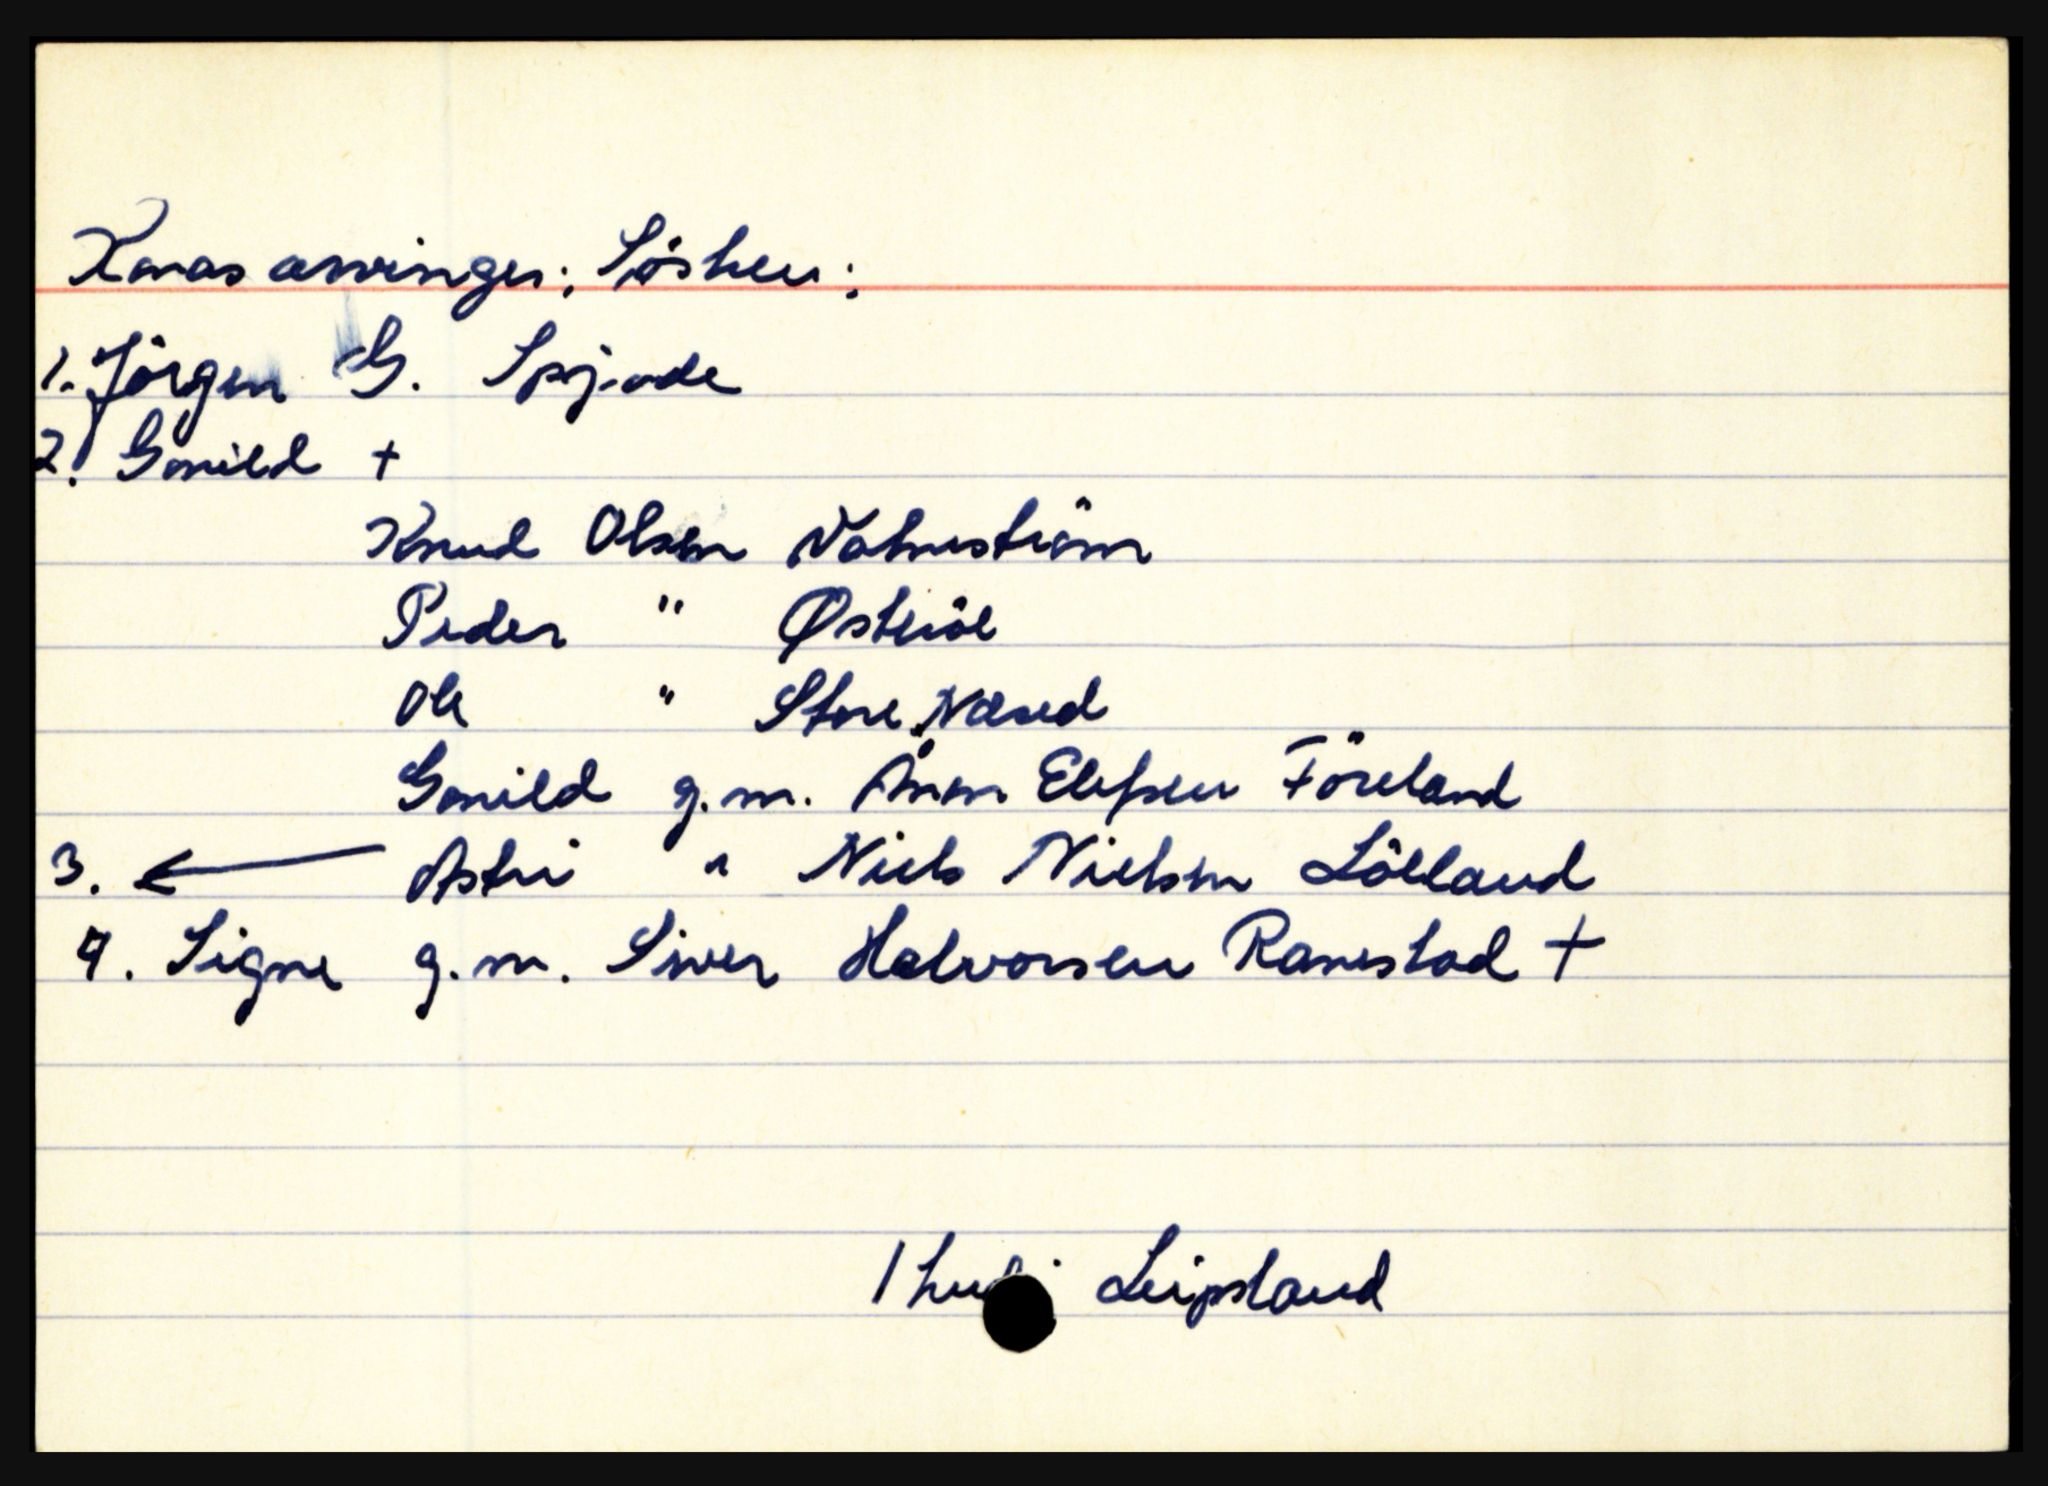 Konas arvinger: Søsken:
1. Jörgen G. Spjode
2. Gonild +
Knud Olsen Valneström
Peder " Østeröl
Ole " Store Naesed
Gonild g.m. Ånen Elefsen Föreland
3. ← Astri " Niels Nielsen Lölland
4. Signe g.m. Siver Halvorsen Ranestad +
1 hud i Leipsland